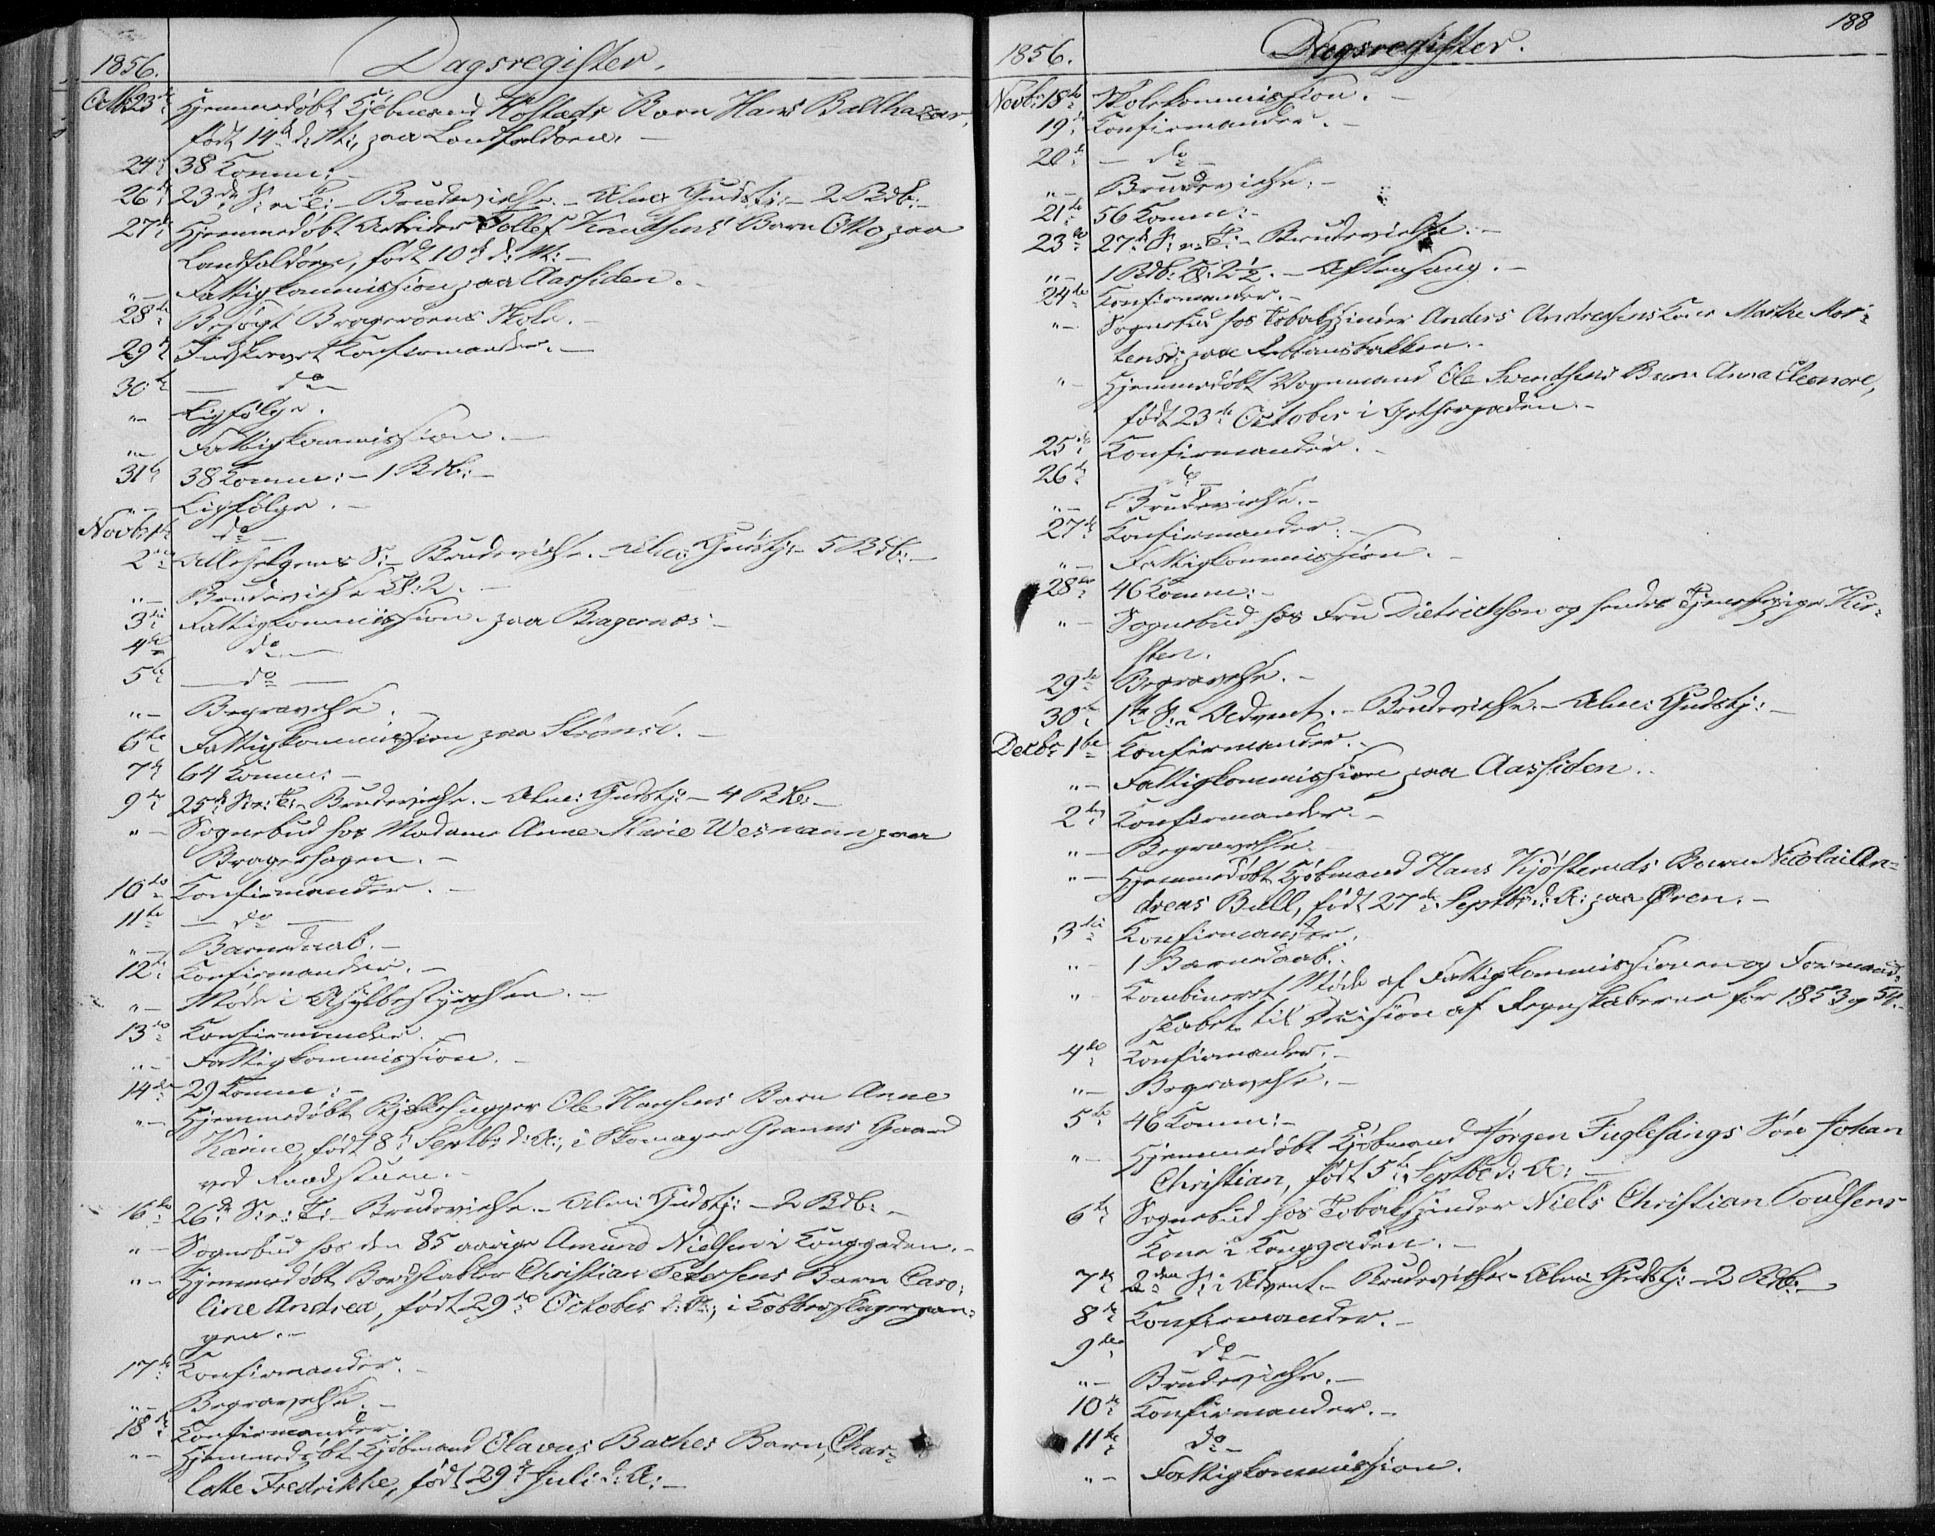 1856. Dagsregister.
Octb: 23de Hjemmedøbt Kjøbmand Kolstads Barn Hans Balthazar,
født 14de d: M:, paa Landfaldøen. —
24de 38 Komm: —
26de 23de S: e: T: — Brudevielse. — Alm: Gudstj: — 2 Bdb: —
27de Hjemmedøbt Arbeider Tollef Knudsens Barn Otto paa
Landfaldøen, født 10de d: M: —
" — Fattigkommission paa Aassiden. —
28de Besøgt Bragerøens Skole. —
29de Indskrevet Konfirmander. —
30te — do —
" — Ligfølge.
" — Fattigkommission. —
31te 38 Komm: — 1 Bdb: —
" — Ligfølge. —
Novb: 1ste do —
2den Allehelgens S: — Brudevielse. — Alm: Gudstj: — 5 Bdb: —
" — Brudevielse Kl: 2. —
3die Fattigkommission paa Bragernæs. —
4de do —
5te — do —
" — Begravelse. —
6te Fattigkommission paa Strømsø. —
7de 64 Komm: —
9de 25de S: e: T: — Brudevielse. — Alm: Gudstj: — 4 Bdb: —
" — Sognebud hos Madame Anne Marie Wesmann paa
Bragerhagen. —
10de Konfirmander. —
11te — do —
" — Barnedaab. —
12te Konfirmander. —
" — Møde i Asylbestyrelsen. —
13de Konfirmander. —
" — Fattigkommission. —
14de 29 Komm: —
" — Hjemmedøbt Bjelkehugger Ole Hansens Barn Anne
Karine, født 8de Septbr d: A:, i Skomager Granns Gaard
ved Raadstuen. —
16de 26de S: e: T: — Brudevielse. — Alm: Gudstj: — 2 Bdb: —
" — Sognebud hos den 85 aarige Amund Nielsen i Konggaden. —
" — Hjemmedøbt Bordstabler Christian Petersens Barn Caro-
line Andrea, født 29de October d: A:, i Kobberslagergan-
gen. —
17de Konfirmander. —
" — Begravelse. —
18de Konfirmander. —
" — Hjemmedøbt Kjøbmand Olavus Baches Barn, Char-
lotte Fredrikke, født 29de Juli d: A: —
188
1856. Dagsregister.
Novb: 18de Skolekommission. —
19de Konfirmander. —
20de — do —
" — Brudevielse. —
21de 56 Komm: —
23de 27de S: e: T: — Brudevielse. —
" — 1 Bdb: Kl: 2½. — Aftensang. —
24de Konfirmander. —
" — Sognebud hos Tobakspinder Anders Andersens Kone Marthe Mor-
tensd: paa
" — Hjemmedøbt Vognmand Ole Svendsens Barn Anna Eleonore,
født 23de October i Gethergaden. —
25de Konfirmander. —
26de do —
" — Brudevielse. —
27de Konfirmander. —
" — Fattigkommission. —
28de 46 Komm: —
" — Sognebud hos Fru Dietrichson og hendes Tjenestepige Kir-
sten.
29de Begravelse. —
30te 1ste S: i Advent. — Brudevielse. — Alm: Gudstj: —
Decbr 1ste Konfirmander. —
" — Fattigkommission paa Aassiden. —
2den Konfirmander. —
" — Begravelse. —
" — Hjemmedøbt Kjøbmand Hans Kjøsteruds Barn Nicolai An-
dreas Bull, født 27de Septbr d: A: paa Øren. —
3die Konfirmander.
" — 1 Barnedaab. —
" — Kombineret Møde af Fattigkommissionen og Formand-
skabet til Decision af Regnskaberne for 1853 og 54. —
4de Konfirmander. —
" — Begravelse. —
5te 46 Komm: —
" — Hjemmedøbt Kjøbmand Jørgen Fuglesangs Søn Johan
Christian, født 5te Septbr d: A: —
6te Sognebud hos Tobakspinder Niels Christian Poulsens
Kone i Konggaden. —
7de 2den S: i Advent. — Brudevielse. — Alm: Gudstj: — 2 Bdb: —
8de Konfirmander. —
9de do —
" — Brudevielse. —
10de Konfirmander. —
11te do —
" — Fattigkommission.